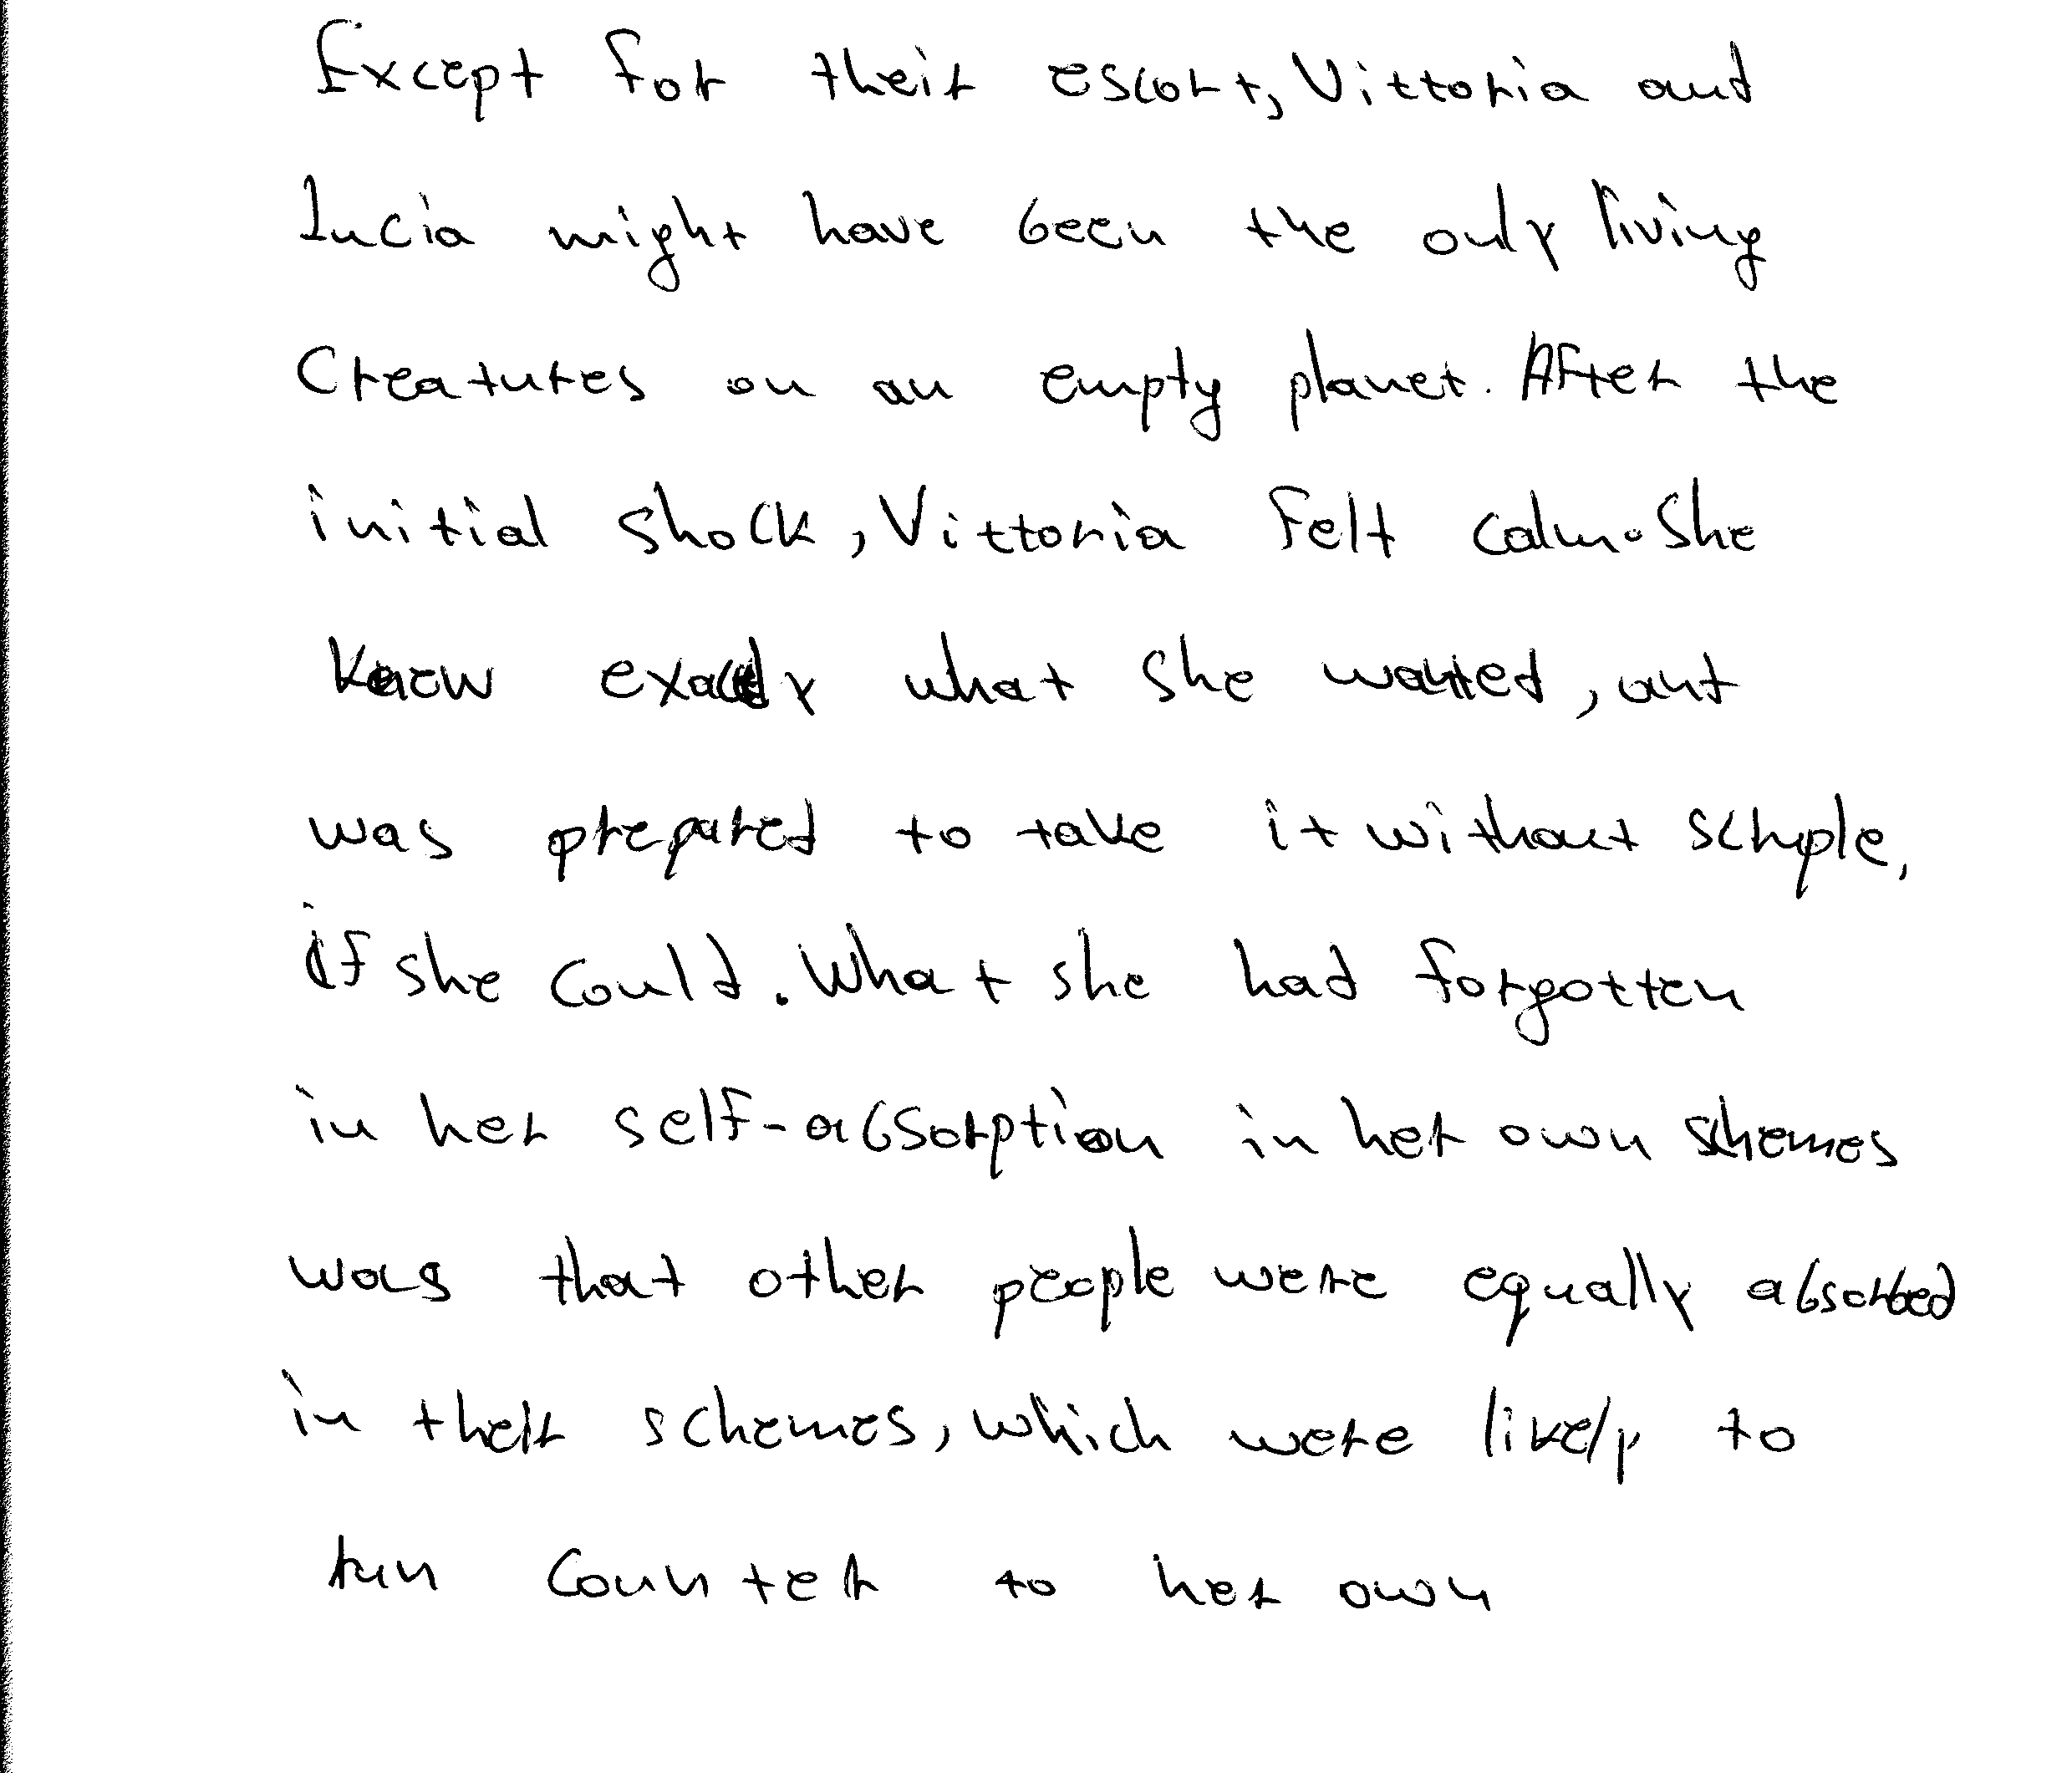 Except for their escort, Vittoria and
Lucia might have been the only living
Creatures on an empty planet. After the
initial shock, Vittoria felt calm. She
knew exactly what she wanted, and
was prepared to take it without scruple,
if she could. What she had forgotten
in her self-absorption in her own schemes
was that other people were equally absorbed
in their schemes, which were likely to
run counter to her own